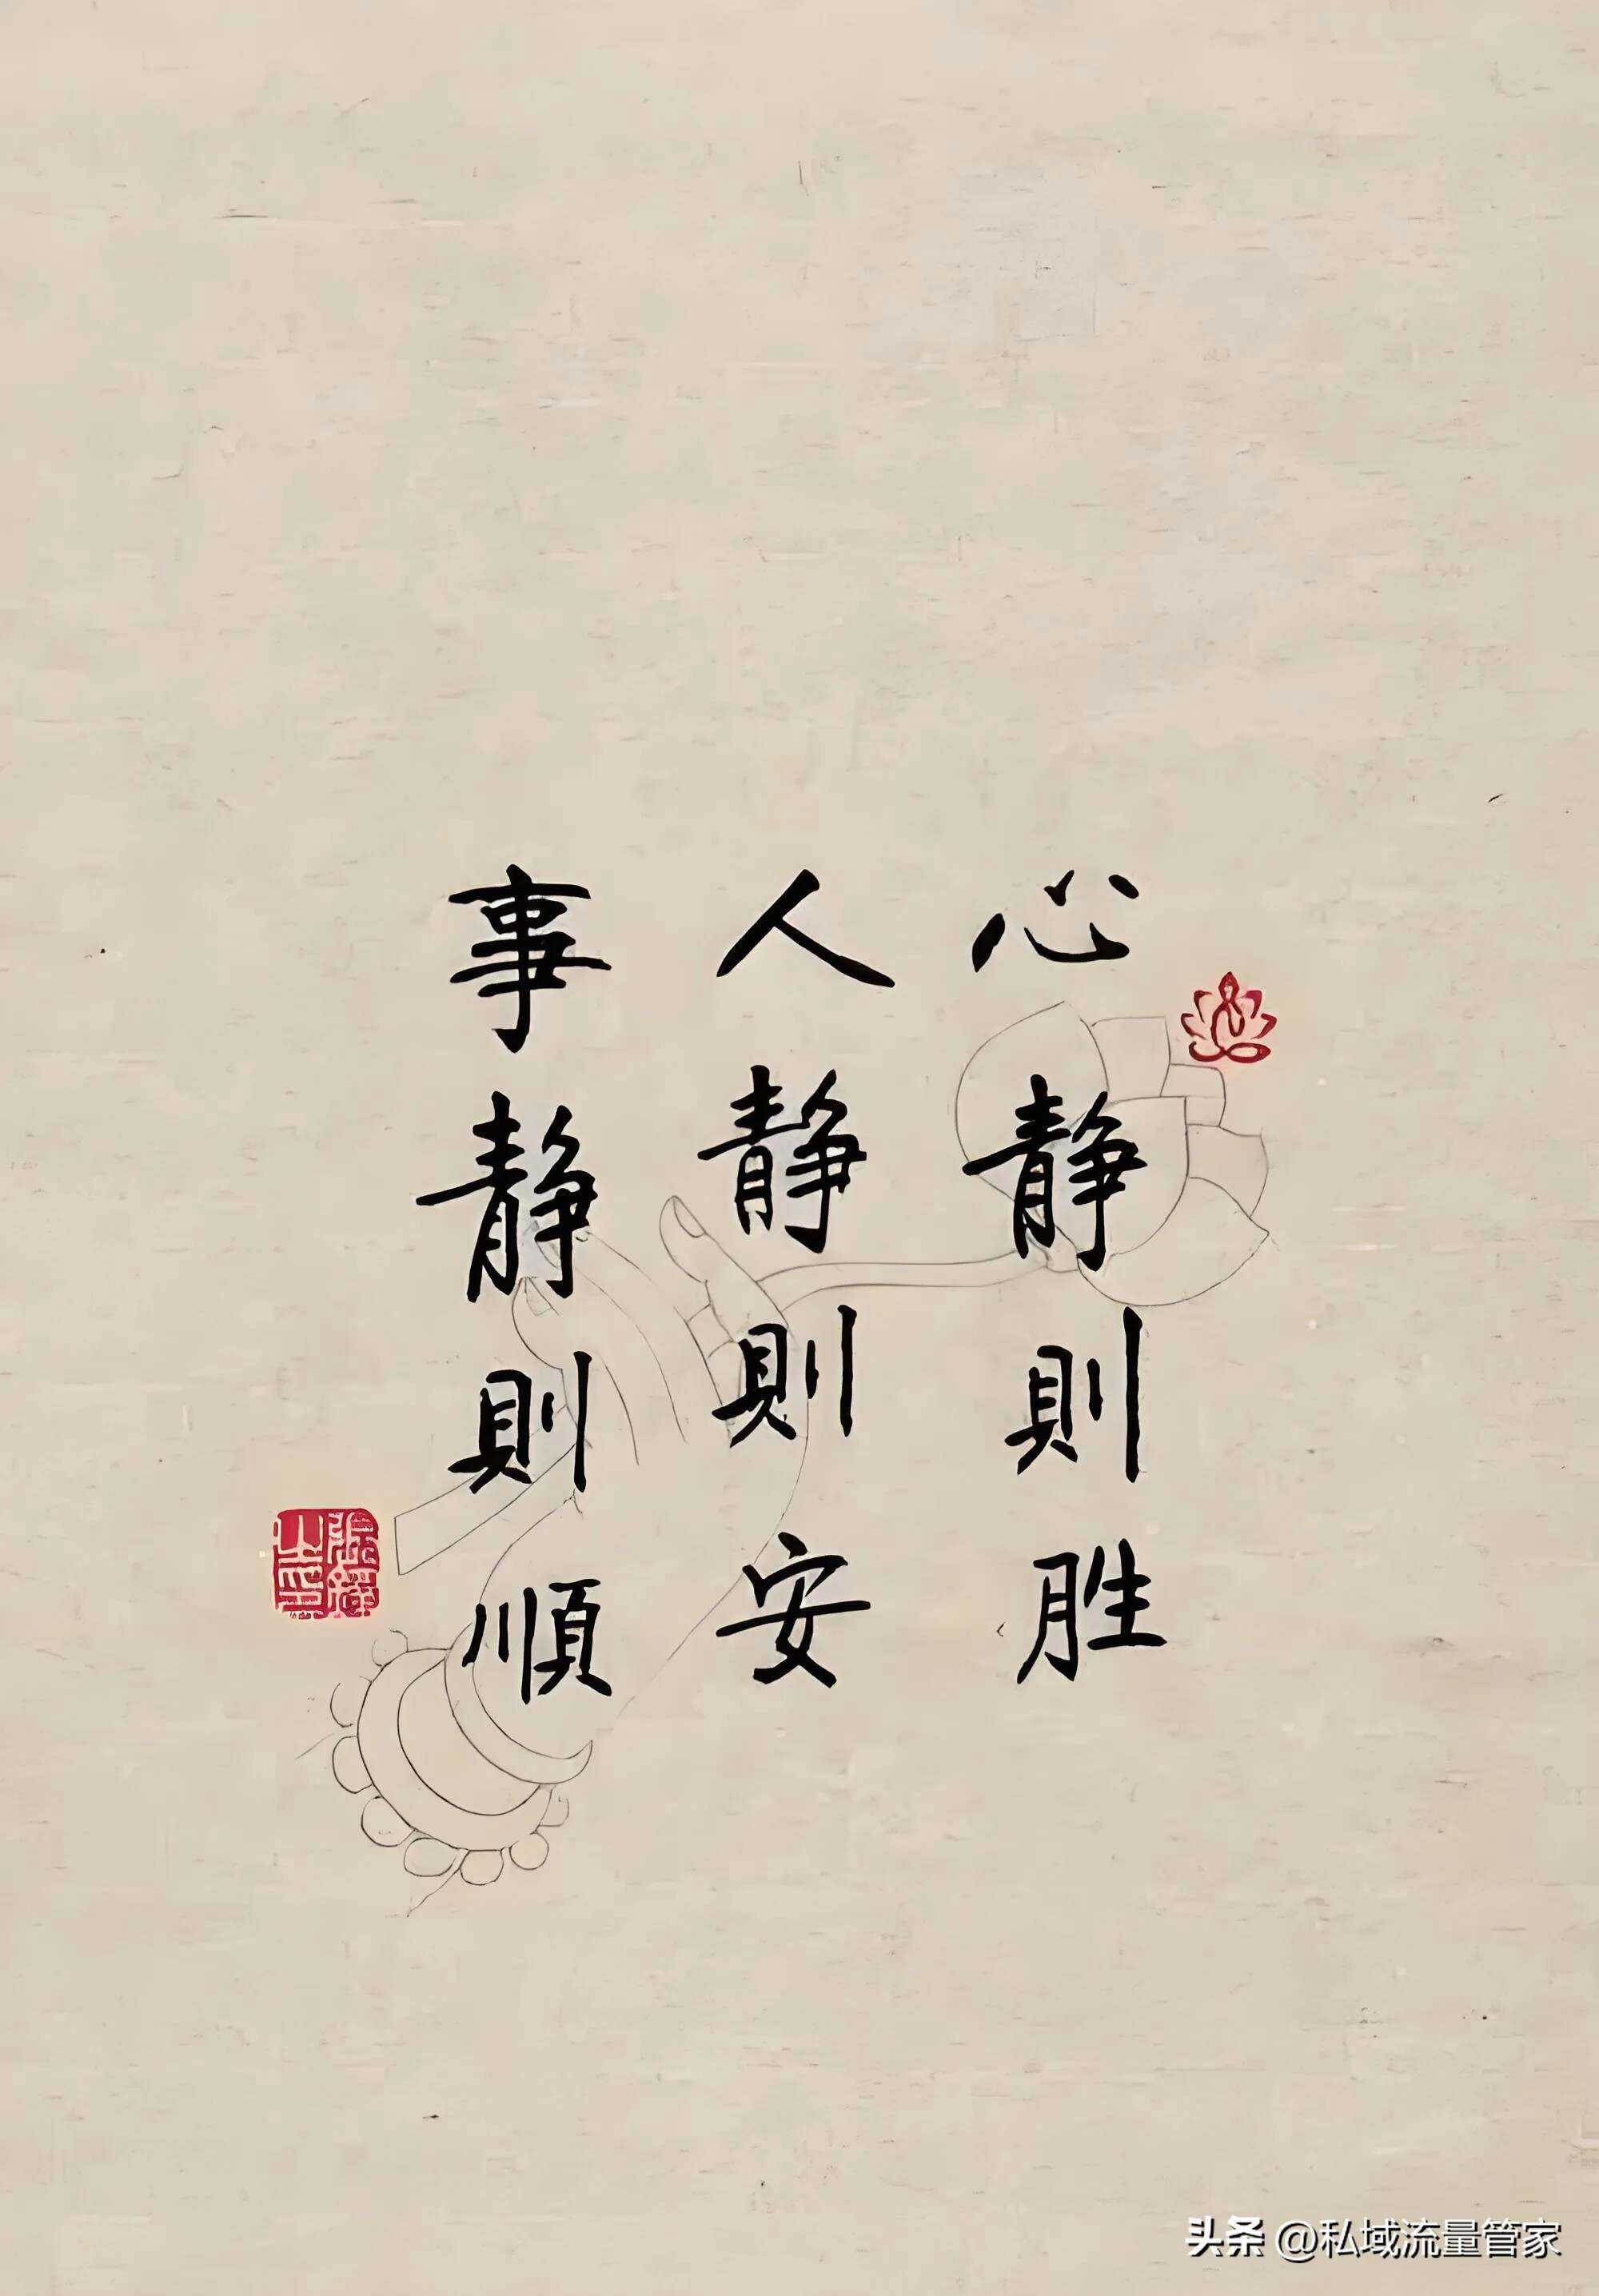 心静則胜
人静則安
事静則順
头条 @私域流量管家